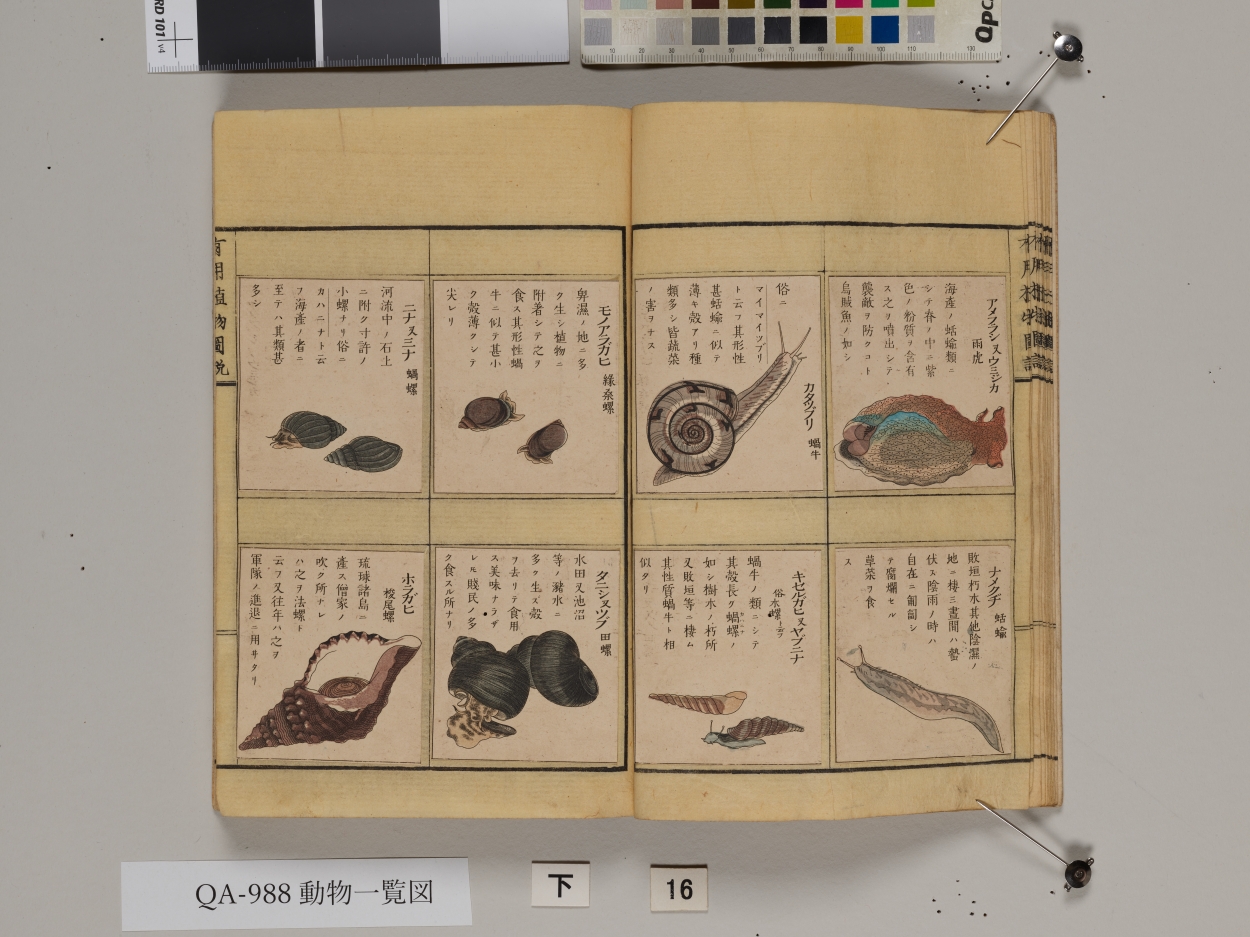 アメフラシ 又ウミジカ
雨虎
海產ノ蛞蝓類ニ
シテ脊ノ中ニ紫
色ノ粉質ヲ含有
ス之ヲ噴出シテ
襲敵ヲ防クコト
烏賊魚ノ如シ
カタツブリ 蝸牛
俗ニ
マイマイツブリ
ト云フ其形性
甚蛞蝓ニ似テ
薄キ殻アリ種
類多シ皆蔬菜
ノ害ヲナス
ナメクヂ 蛞蝓
敗垣朽木其他陰濕ノ
地ニ棲ミ晝間ハ蟄
伏ス陰雨ノ時ハ
自在ニ匍匐シ
テ腐爛セル
草菜ヲ食
ス
キセルガヒ 又ヤブニナ
蝸牛ノ類ニシテ
其殻長ク蝸螺ノ
如シ樹木ノ朽所
又敗垣等ニ棲ム
其性質蝸牛ト相
似タリ
モノアラガヒ 緣桑螺
卑濕ノ地ニ多
ク生シ植物ニ
附着シテ之ヲ
食ス其形性蝸
牛ニ似テ甚小
ク殻薄クシテ
尖レリ
ニナ 又ミナ 蝸螺
河流中ノ石上
ニ附ク寸許ノ
小螺ナリ俗ニ
カハニナト云
フ海產ノ者ニ
至テハ其類甚
多シ
タニシ 又ツブ 田螺
水田又池沼
等ノ瀦水ニ
多ク生ス殻
ヲ去リテ食用
ス美味ナラザ
レ𪜈賤民ノ多
ク食スル所ナリ
ホラガヒ
梭尾螺
琉球諸島ニ
產ス僧家ノ
吹ク所ナレ
ハ之ヲ法螺ト
云フ又往年ハ之ヲ
軍隊ノ進退ニ用サタリ
QA-988 動物一覧図
下
16